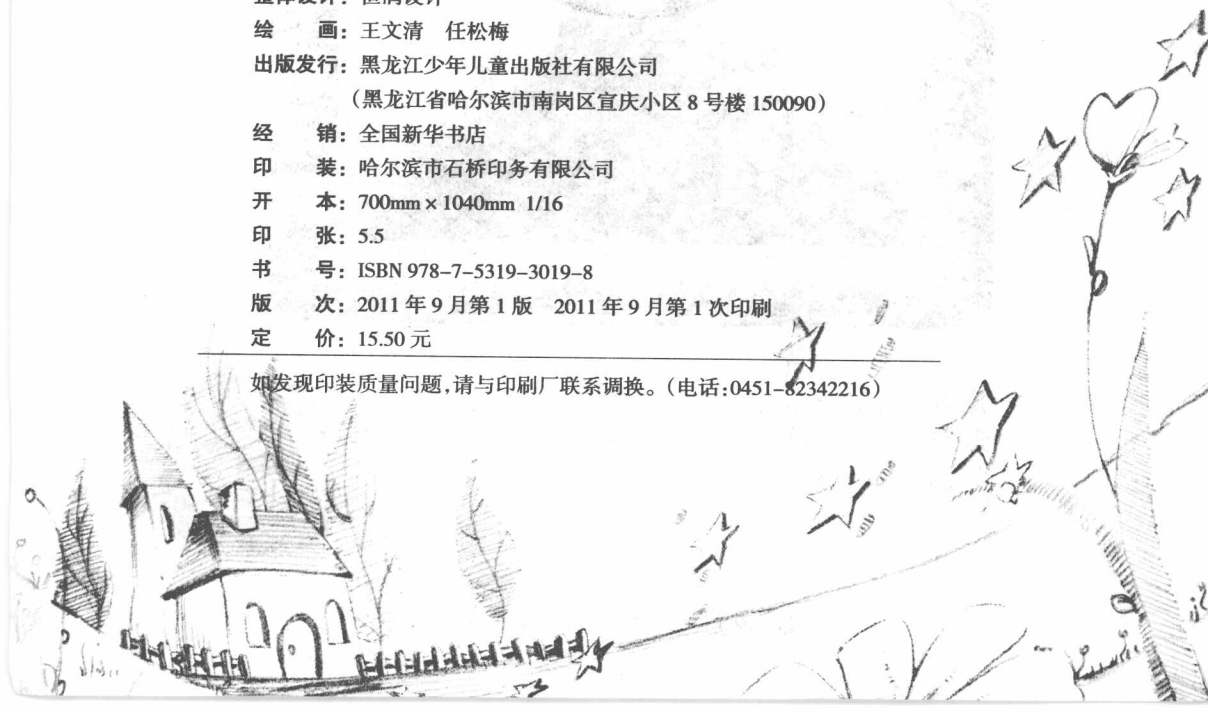 绘　　画：王文清　任松梅
出版发行：黑龙江少年儿童出版社有限公司
（黑龙江省哈尔滨市南岗区宣庆小区 8 号楼 150090）
经　　销：全国新华书店
印　　装：哈尔滨市石桥印务有限公司
开　　本：700mm × 1040mm 1/16
印　　张：5.5
书　　号：ISBN 978-7-5319-3019-8
版　　次：2011 年 9 月第 1 版　2011 年 9 月第 1 次印刷
定　　价：15.50 元
如发现印装质量问题，请与印刷厂联系调换。（电话：0451-82342216）